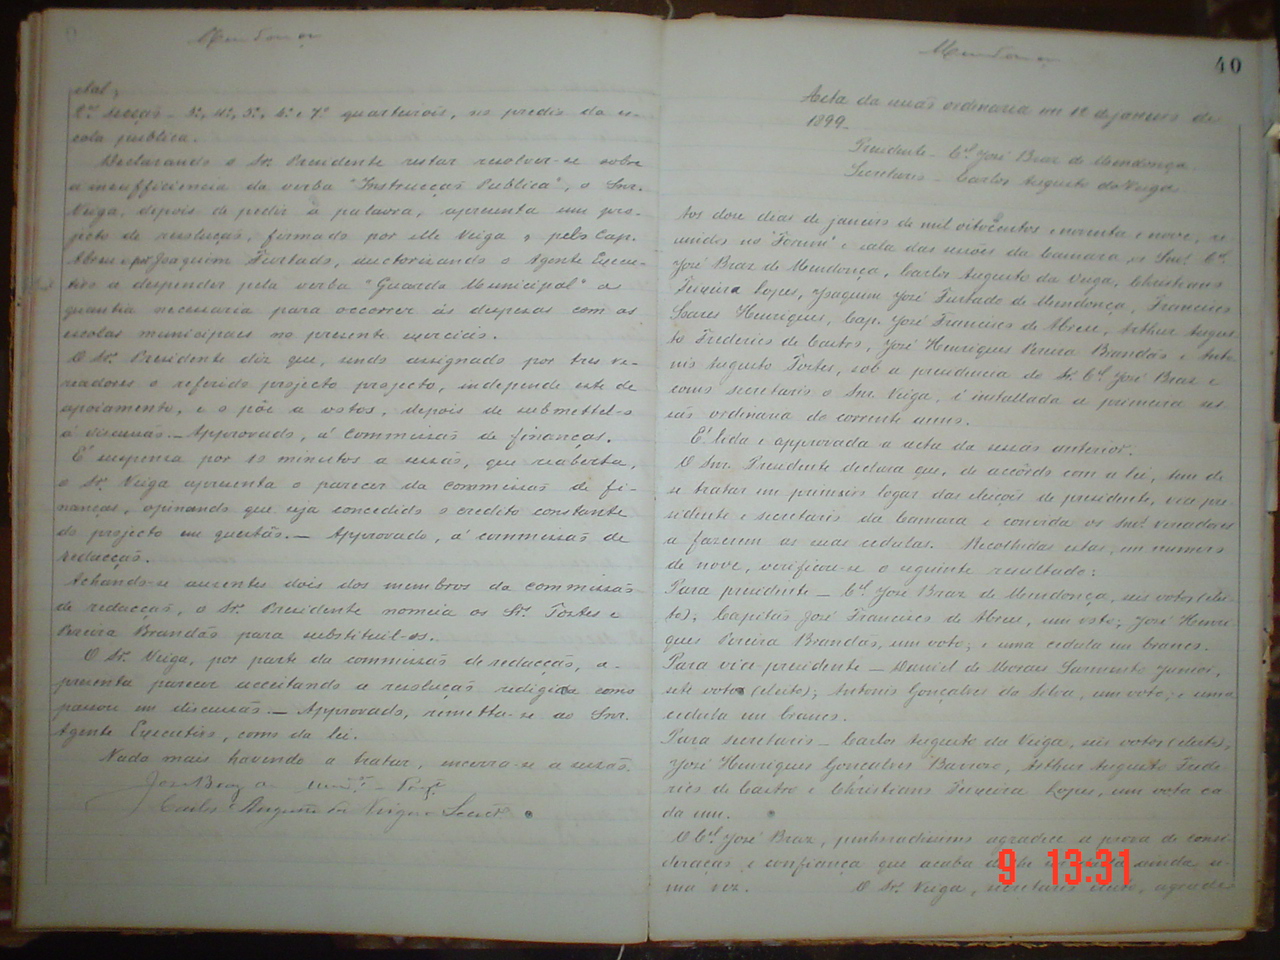 Mendonça
etal;
2ª secção - 3º, 4º, 5º, 6º e 7º quarteirões, no predio da es-
cola publica.
Declarando o Sr. Presidente restar resolver-se sobre
a insufficiencia da verba "Instrucção Publica", o Snr.
Veiga, depois de pedir a palavra, apresenta um pro-
jecto de resolução, firmado por elle Veiga e pelo Cap.
Abreu e por Joaquim Furtado, auctorisando o Agente Execu-
tivo a despender pela verba "Guarda Municipal" a
quantia necessaria para occorrer ás despesas com as
escolas municipaes no presente exercicio.
O Sr. Presidente diz que, sendo assignado por tres ve-
readores o referido projecto projecto, independe este de
apoiamento, e o põe a votos, depois de submettel-o
á discussão. — Approvado, á commissão de finanças.
É suspensa por 10 minutos a sessão, que reaberta,
o Sr. Veiga apresenta o parecer da commissão de fi-
nanças, opinando que seja concedido o credito constante
do projecto em questão. — Approvado, á commissão de
redacção.
Achando-se ausentes dois dos membros da commissão
de redacção, o Sr. Presidente nomeia os Srs. Fortes e
Pereira Brandão para substituil-os.
O Sr. Veiga, por parte da commissão de redacção, a-
presenta parecer acceitando a resolução redigida como
passou em discussão. — Approvado, remetta-se ao Snr.
Agente Executivo, como da lei.
Nada mais havendo a tratar, encerra-se a sessão.
José Braz de Mendª - Pres
Carlos Augusto da Veiga - Secretº
Mendonça
40
Acta da sessão ordinaria em 12 de janeiro de
1899-
Presidente - Cel. José Braz de Mendonça.
Secretario - Carlos Augusto da Veiga
Aos doze dias de janeiro de mil oitocentos e noventa e nove, re-
unidos no "Forum" e sala das sessões da Camara, os Snrs. Cel.
José Braz de Mendonça, Carlos Augusto da Veiga, Christiano
Teixeira Lopes, Joaquim José Furtado de Mendonça, Francisco
Soares Henriques, Cap. José Francisco de Abreu, Arthur Augus-
to Frederico de Castro, José Henriques Pereira Brandão e Anto-
nio Augusto Fortes, sob a presidencia do Sr. Cel. José Braz e
como secretario o Snr. Veiga, é installada a primeira ses-
são ordinaria do corrente anno.
É lida e approvada a acta da sessão anterior.
O Snr. Presidente declara que, de accôrdo com a lei, tem de
se tratar em primeiro logar das eleições de presidente, vice pre-
sidente e secretario da Camara e convida os Snrs. vereadores
a fazerem as suas cedulas. Recolhidas estas, em numero
de nove, verificou-se o seguinte resultado:
Para presidente — Cel. José Braz de Mendonça, seis votos (elei-
to); Capitão José Francisco de Abreu, um voto; José Henri-
ques Pereira Brandão, um voto; e uma cedula em branco.
Para vice-presidente — Daniel de Moraes Sarmento Junior,
sete votos (eleito); Antonio Gonçalves da Silva, um voto; e uma
cedula em branco.
Para secretario — Carlos Augusto da Veiga, seis votos (eleito);
José Henriques Gonçalves Barroso, Arthur Augusto Frede-
rico de Castro e Christiano Teixeira Lopes, um voto ca-
da um.
O Cel. José Braz, penhoradissimo agradece a prova de consi-
deração e confiança que acaba de lhe ser dada ainda u-
ma vez. O Sr. Veiga, secretario eleito, agrade
9 13:31